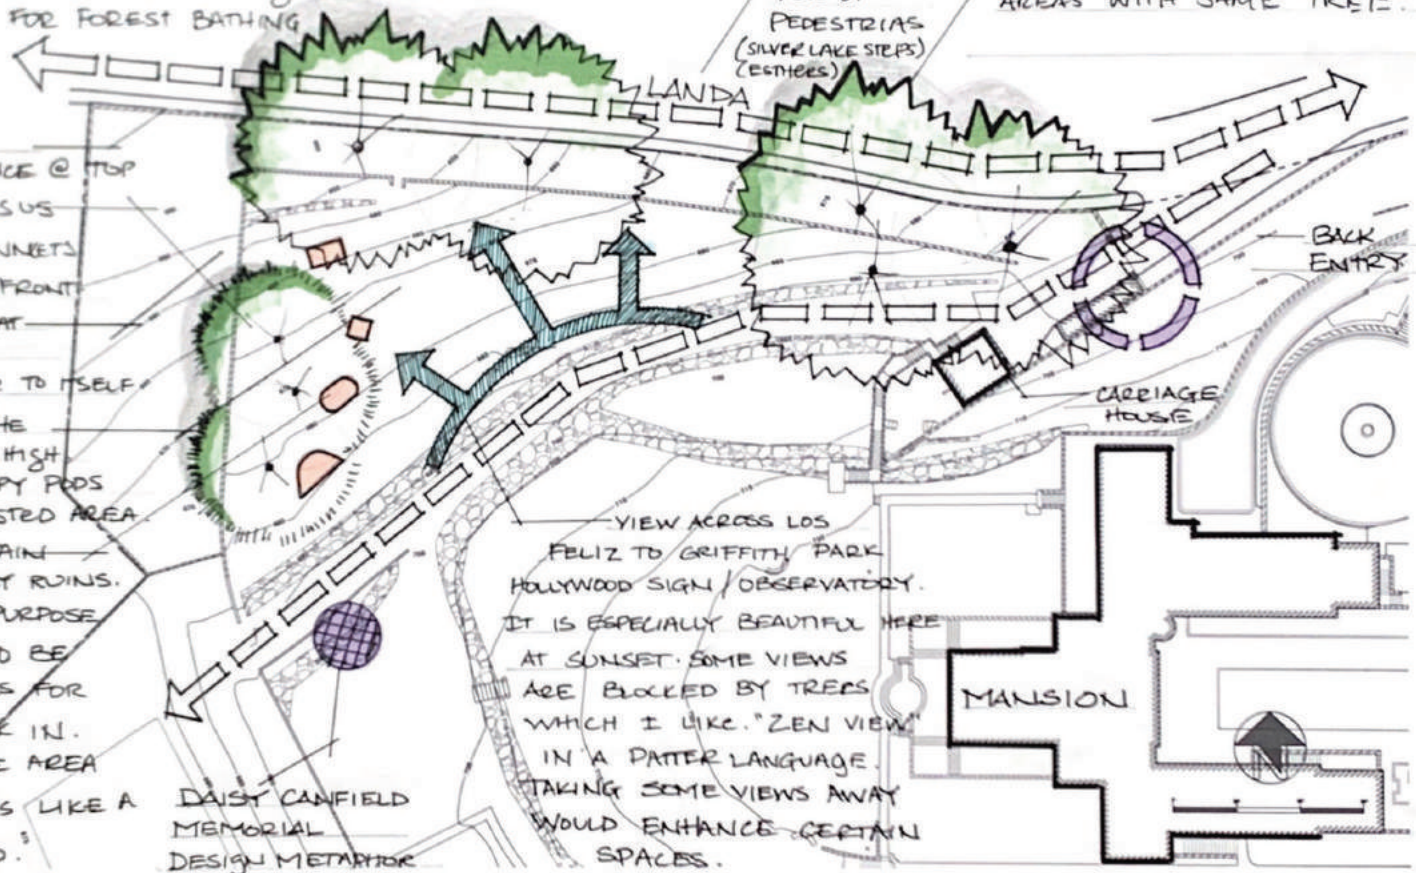 FOR FOREST BATHING
PEDESTRIAS
(SILVER LAKE STEPS)
(ESTHERS)
AREAS WITH SAME TREE.
LANDA
@ TOP
SUS
FRONT
AT
TO ITSELF
HE
HIGH
PY PODS
STED AREA.
AIN
RUINS.
URPOSE
D BE
S FOR
IN.
AREA
S LIKE A
BACK
ENTRY
CARRIAGE
HOUSE
VIEW ACROSS LOS
FELIZ TO GRIFFITH PARK
HOLLYWOOD SIGN / OBSERVATORY.
IT IS ESPECIALLY BEAUTIFUL HERE
AT SUNSET. SOME VIEWS
ARE BLOCKED BY TREES
WHICH I LIKE. "ZEN VIEW"
IN A PATTER LANGUAGE.
TAKING SOME VIEWS AWAY
WOULD ENHANCE CERTAIN
SPACES.
MANSION
N
DAISY CANFIELD
MEMORIAL
DESIGN METAPHOR